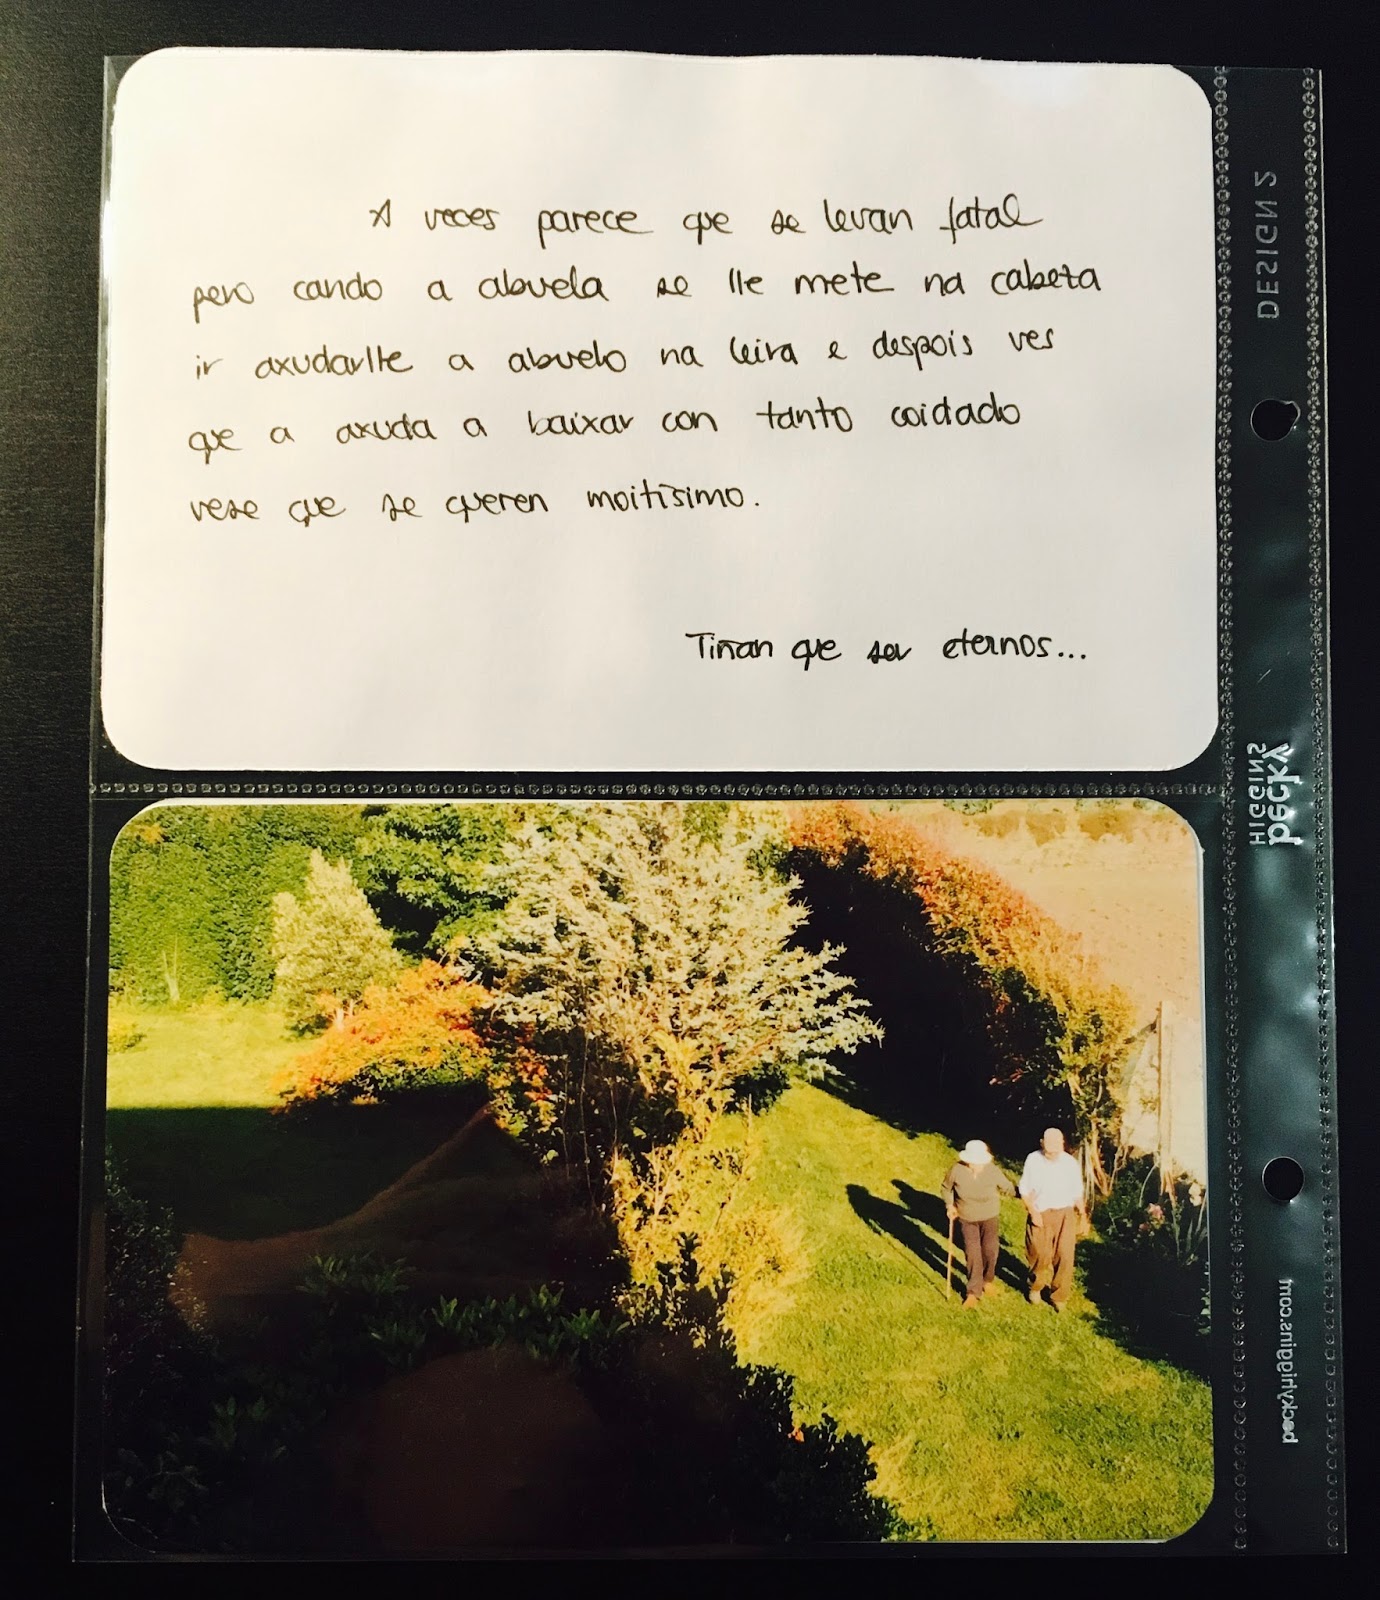 A veces parece que se levan fatal
pero cando a abuela se lle mete na cabeza
ir axudarlle a abuelo na leira e despois ves
que a axuda a baixar con tanto coidado
vese que se queren moitísimo.
Tiñan que ser eternos...
DESIGN 2
becky
HIGGINS
beckyhiggins.com